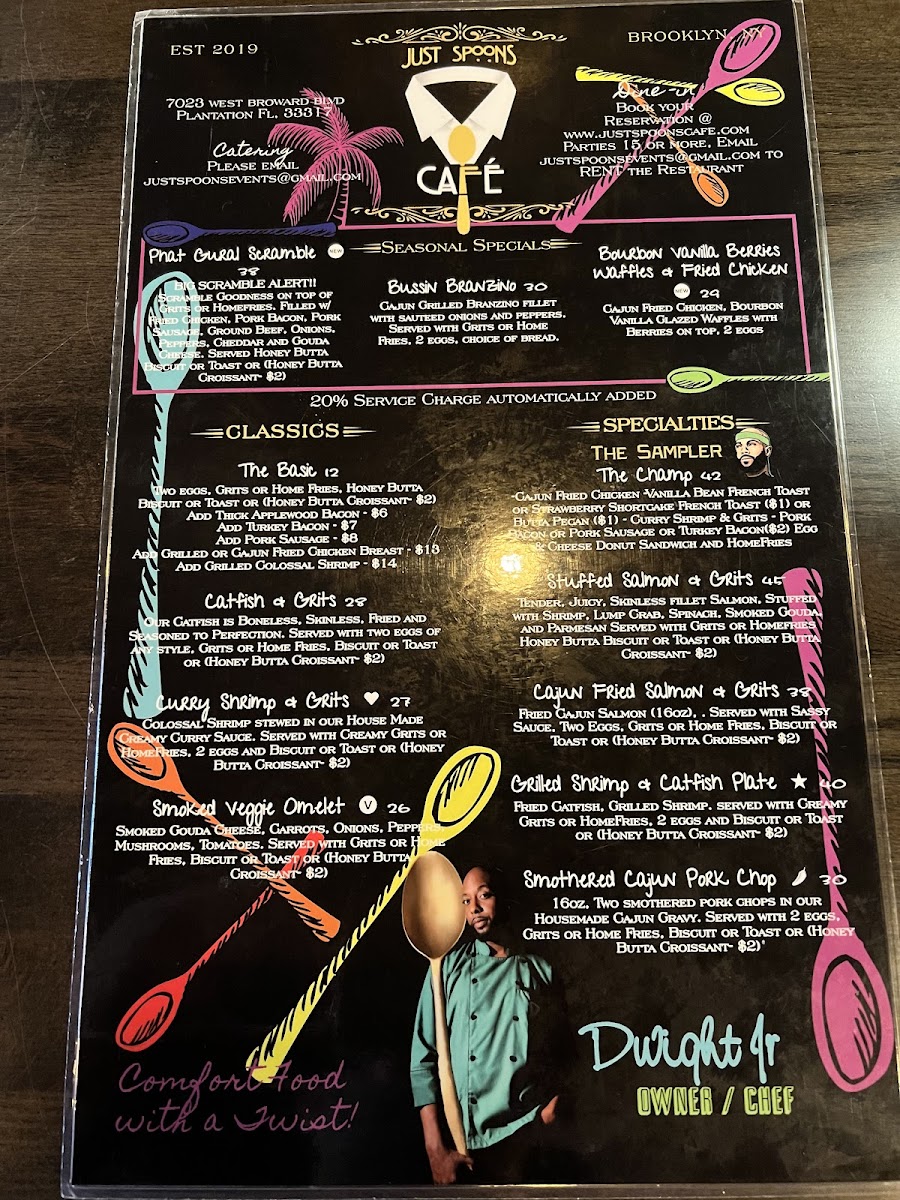 EST 2019
BROOKLYN, NY
JUST SPOONS
CAFÉ
7023 WEST BROWARD BLVD
PLANTATION FL, 33317
Catering
PLEASE EMAIL
JUSTSPOONSEVENTS@GMAIL.COM
Dine-in
BOOK YOUR
RESERVATION @
WWW.JUSTSPOONSCAFE.COM
PARTIES 15 OR MORE, EMAIL
JUSTSPOONSEVENTS@GMAIL.COM TO
RENT THE RESTAURANT
SEASONAL SPECIALS
Phat Gural Scramble NEW
38
BIG SCRAMBLE ALERT!!
SCRAMBLE GOODNESS ON TOP OF
GRITS OR HOMEFRIES, FILLED W/
FRIED CHICKEN, PORK BACON, PORK
SAUSAGE, GROUND BEEF, ONIONS,
PEPPERS, CHEDDAR AND GOUDA
CHEESE. SERVED HONEY BUTTA
BISCUIT OR TOAST OR (HONEY BUTTA
CROISSANT- $2)
Bussin Branzino 30
CAJUN GRILLED BRANZINO FILLET
WITH SAUTEED ONIONS AND PEPPERS.
SERVED WITH GRITS OR HOME
FRIES, 2 EGGS, CHOICE OF BREAD.
Bourbon Vanilla Berries
Waffles & Fried Chicken
NEW 29
CAJUN FRIED CHICKEN, BOURBON
VANILLA GLAZED WAFFLES WITH
BERRIES ON TOP, 2 EGGS
20% SERVICE CHARGE AUTOMATICALLY ADDED
CLASSICS
The Basic 12
TWO EGGS, GRITS OR HOME FRIES, HONEY BUTTA
BISCUIT OR TOAST OR (HONEY BUTTA CROISSANT- $2)
ADD THICK APPLEWOOD BACON - $6
ADD TURKEY BACON - $7
ADD PORK SAUSAGE - $8
ADD GRILLED OR CAJUN FRIED CHICKEN BREAST - $13
ADD GRILLED COLOSSAL SHRIMP - $14
Catfish & Grits 28
OUR CATFISH IS BONELESS, SKINLESS, FRIED AND
SEASONED TO PERFECTION. SERVED WITH TWO EGGS OF
ANY STYLE, GRITS OR HOME FRIES, BISCUIT OR TOAST
OR (HONEY BUTTA CROISSANT- $2)
Curry Shrimp & Grits ♥ 27
COLOSSAL SHRIMP STEWED IN OUR HOUSE MADE
CREAMY CURRY SAUCE. SERVED WITH CREAMY GRITS OR
HOMEFRIES, 2 EGGS AND BISCUIT OR TOAST OR (HONEY
BUTTA CROISSANT- $2)
Smoked Veggie Omelet V 26
SMOKED GOUDA CHEESE, CARROTS, ONIONS, PEPPERS,
MUSHROOMS, TOMATOES. SERVED WITH GRITS OR HOME
FRIES, BISCUIT OR TOAST OR (HONEY BUTTA
CROISSANT- $2)
SPECIALTIES
THE SAMPLER
The Champ 42
-CAJUN FRIED CHICKEN -VANILLA BEAN FRENCH TOAST
OR STRAWBERRY SHORTCAKE FRENCH TOAST ($1) OR
BUTTA PECAN ($1) - CURRY SHRIMP & GRITS - PORK
BACON OR PORK SAUSAGE OR TURKEY BACON($2) EGG
& CHEESE DONUT SANDWICH AND HOMEFRIES
Stuffed Salmon & Grits 45
TENDER, JUICY, SKINLESS FILLET SALMON, STUFFED
WITH SHRIMP, LUMP CRAB, SPINACH, SMOKED GOUDA,
AND PARMESAN SERVED WITH GRITS OR HOMEFRIES
HONEY BUTTA BISCUIT OR TOAST OR (HONEY BUTTA
CROISSANT- $2)
Cajun Fried Salmon & Grits 38
FRIED CAJUN SALMON (16OZ), . SERVED WITH SASSY
SAUCE, TWO EGGS, GRITS OR HOME FRIES, BISCUIT OR
TOAST OR (HONEY BUTTA CROISSANT- $2)
Grilled Shrimp & Catfish Plate ★ 40
FRIED CATFISH, GRILLED SHRIMP. SERVED WITH CREAMY
GRITS OR HOMEFRIES, 2 EGGS AND BISCUIT OR TOAST
OR (HONEY BUTTA CROISSANT- $2)
Smothered Cajun Pork Chop 30
16OZ, TWO SMOTHERED PORK CHOPS IN OUR
HOUSEMADE CAJUN GRAVY. SERVED WITH 2 EGGS,
GRITS OR HOME FRIES, BISCUIT OR TOAST OR (HONEY
BUTTA CROISSANT- $2)'
Comfort Food
with a Twist!
Dwight Jr
OWNER / CHEF